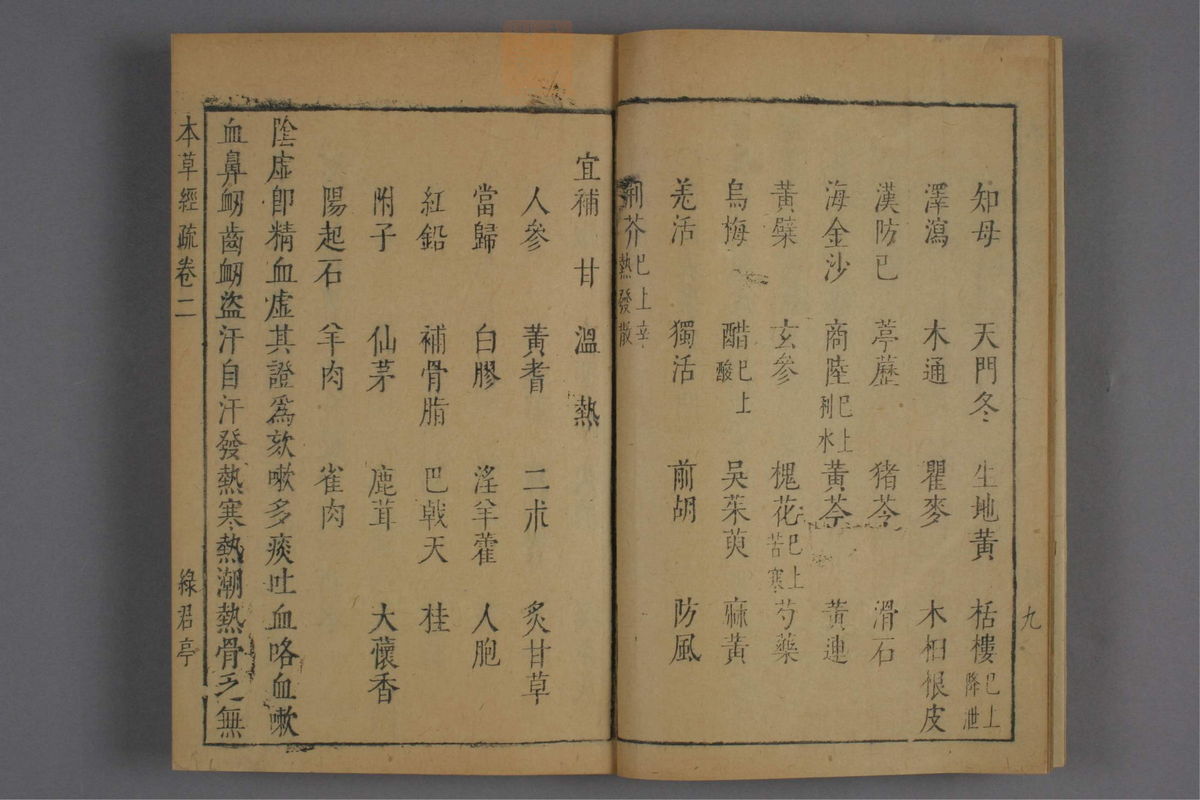 知母 天門冬 生地黃 栝樓已上降泄
澤瀉 木通 瞿麥 木根皮
漢防已 葶藶 猪苓 滑石
海金沙 商陸已上利水 黃芩 黃連
黃檗 玄參 槐花已上苦寒 芍藥
烏梅 醋已上酸 吳茱萸 麻黃
羌活 獨活 前胡 防風
荆芥已上辛熱發散
九
宜補甘溫熱
人參 黃耆 二朮 炙甘草
當歸 白膠 淫羊藿 人胞
紅鉛 補骨脂 巴戟天 桂
附子 仙茅 鹿茸 大蘹香
陽起石 羊肉 雀肉
陰虛卽精血虛其證爲欬嗽多痰吐血咯血嗽
血鼻衂齒衂盜汗自汗發熱寒熱潮熱骨乏無
本草經疏卷二 綠君亭